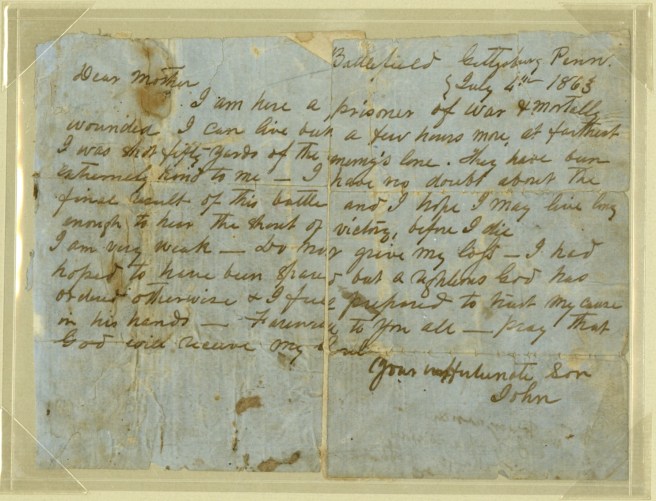 Battlefield Gettysburg Penn.
Dear Mother July 4th 1863
I am here a prisoner of war & mortally
wounded. I can live but a few hours more at farthest
I was shot fifty yards of the enemy's line. They have been
extremely kind to me — I have no doubt about the
final result of this battle and I hope I may live long
enough to hear the shout of victory, before I die
I am very weak — Do not my loss — I had
hoped to have been spared but a righteous God has
ordered otherwise & I feel prepared to trust my cause
in his hands — Farewell to you all — pray that
God will receive my soul
Your unfortunate Son
John